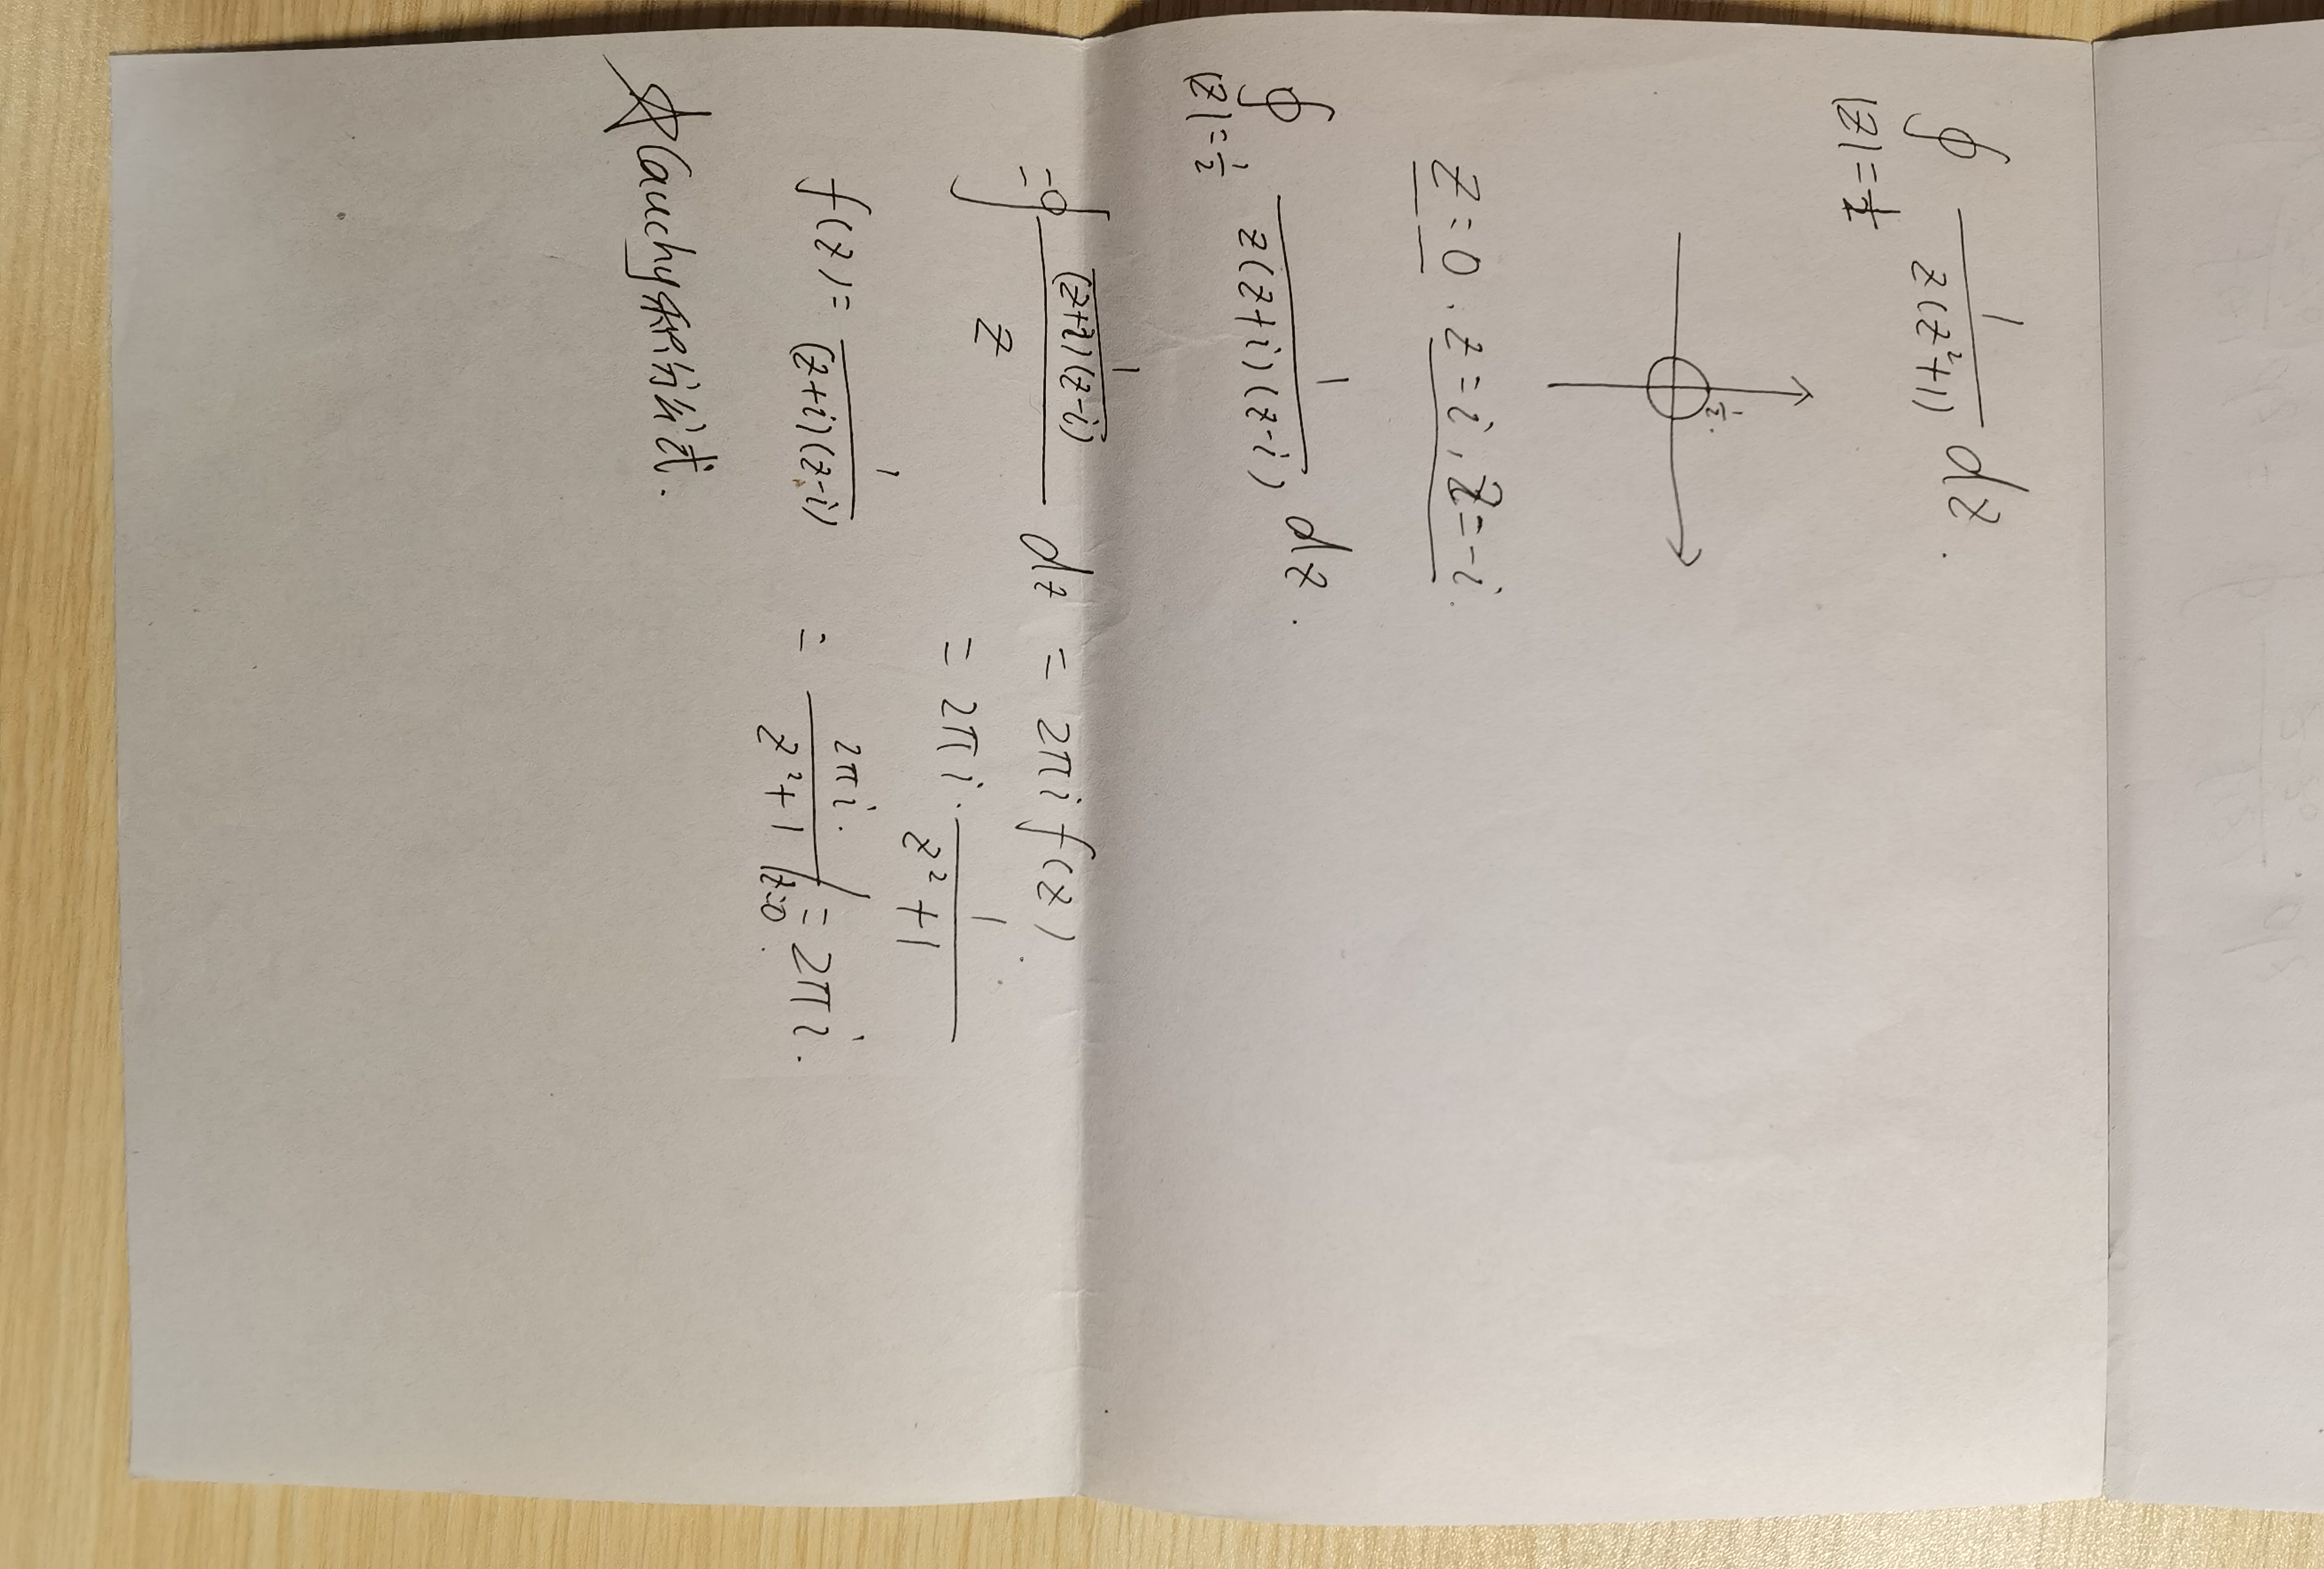 ∮ 1/(z(z²+1)) dz.
|z|=1/2
1/2.
z=0. z=i, z=-i.
∮ 1/(z(z+i)(z-i)) dz.
|z|=1/2
=∮ (1/((z+i)(z-i)))/z dz = 2πi f(z).
= 2πi · 1/(z²+1)
f(z)= 1/((z+i)(z-i)) = 2πi·/(z²+1) |z=0. = 2πi.
☆Cauchy积分公式.